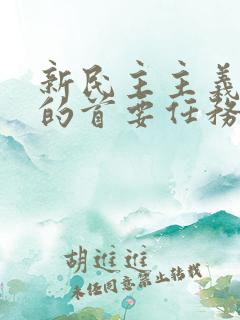 新民主主义
的首要任务
胡进进
未经同意禁止转载